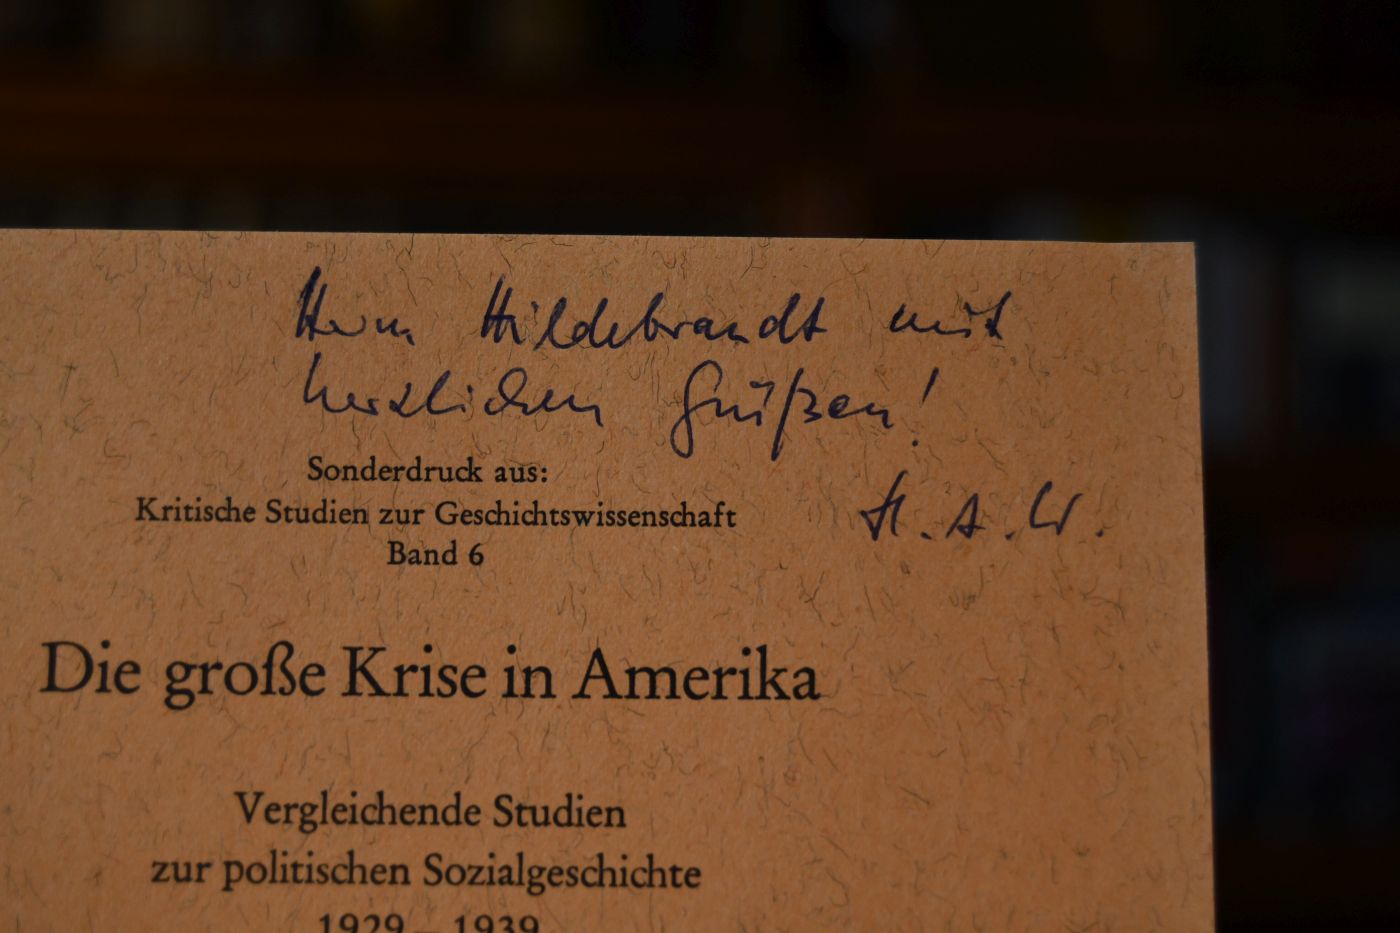 Herrn Hildebrandt mit
herzlichen Grüßen!
H. A. W.
Sonderdruck aus:
Kritische Studien zur Geschichtswissenschaft
Band 6
Die große Krise in Amerika
Vergleichende Studien
zur politischen Sozialgeschichte
1929 – 1939